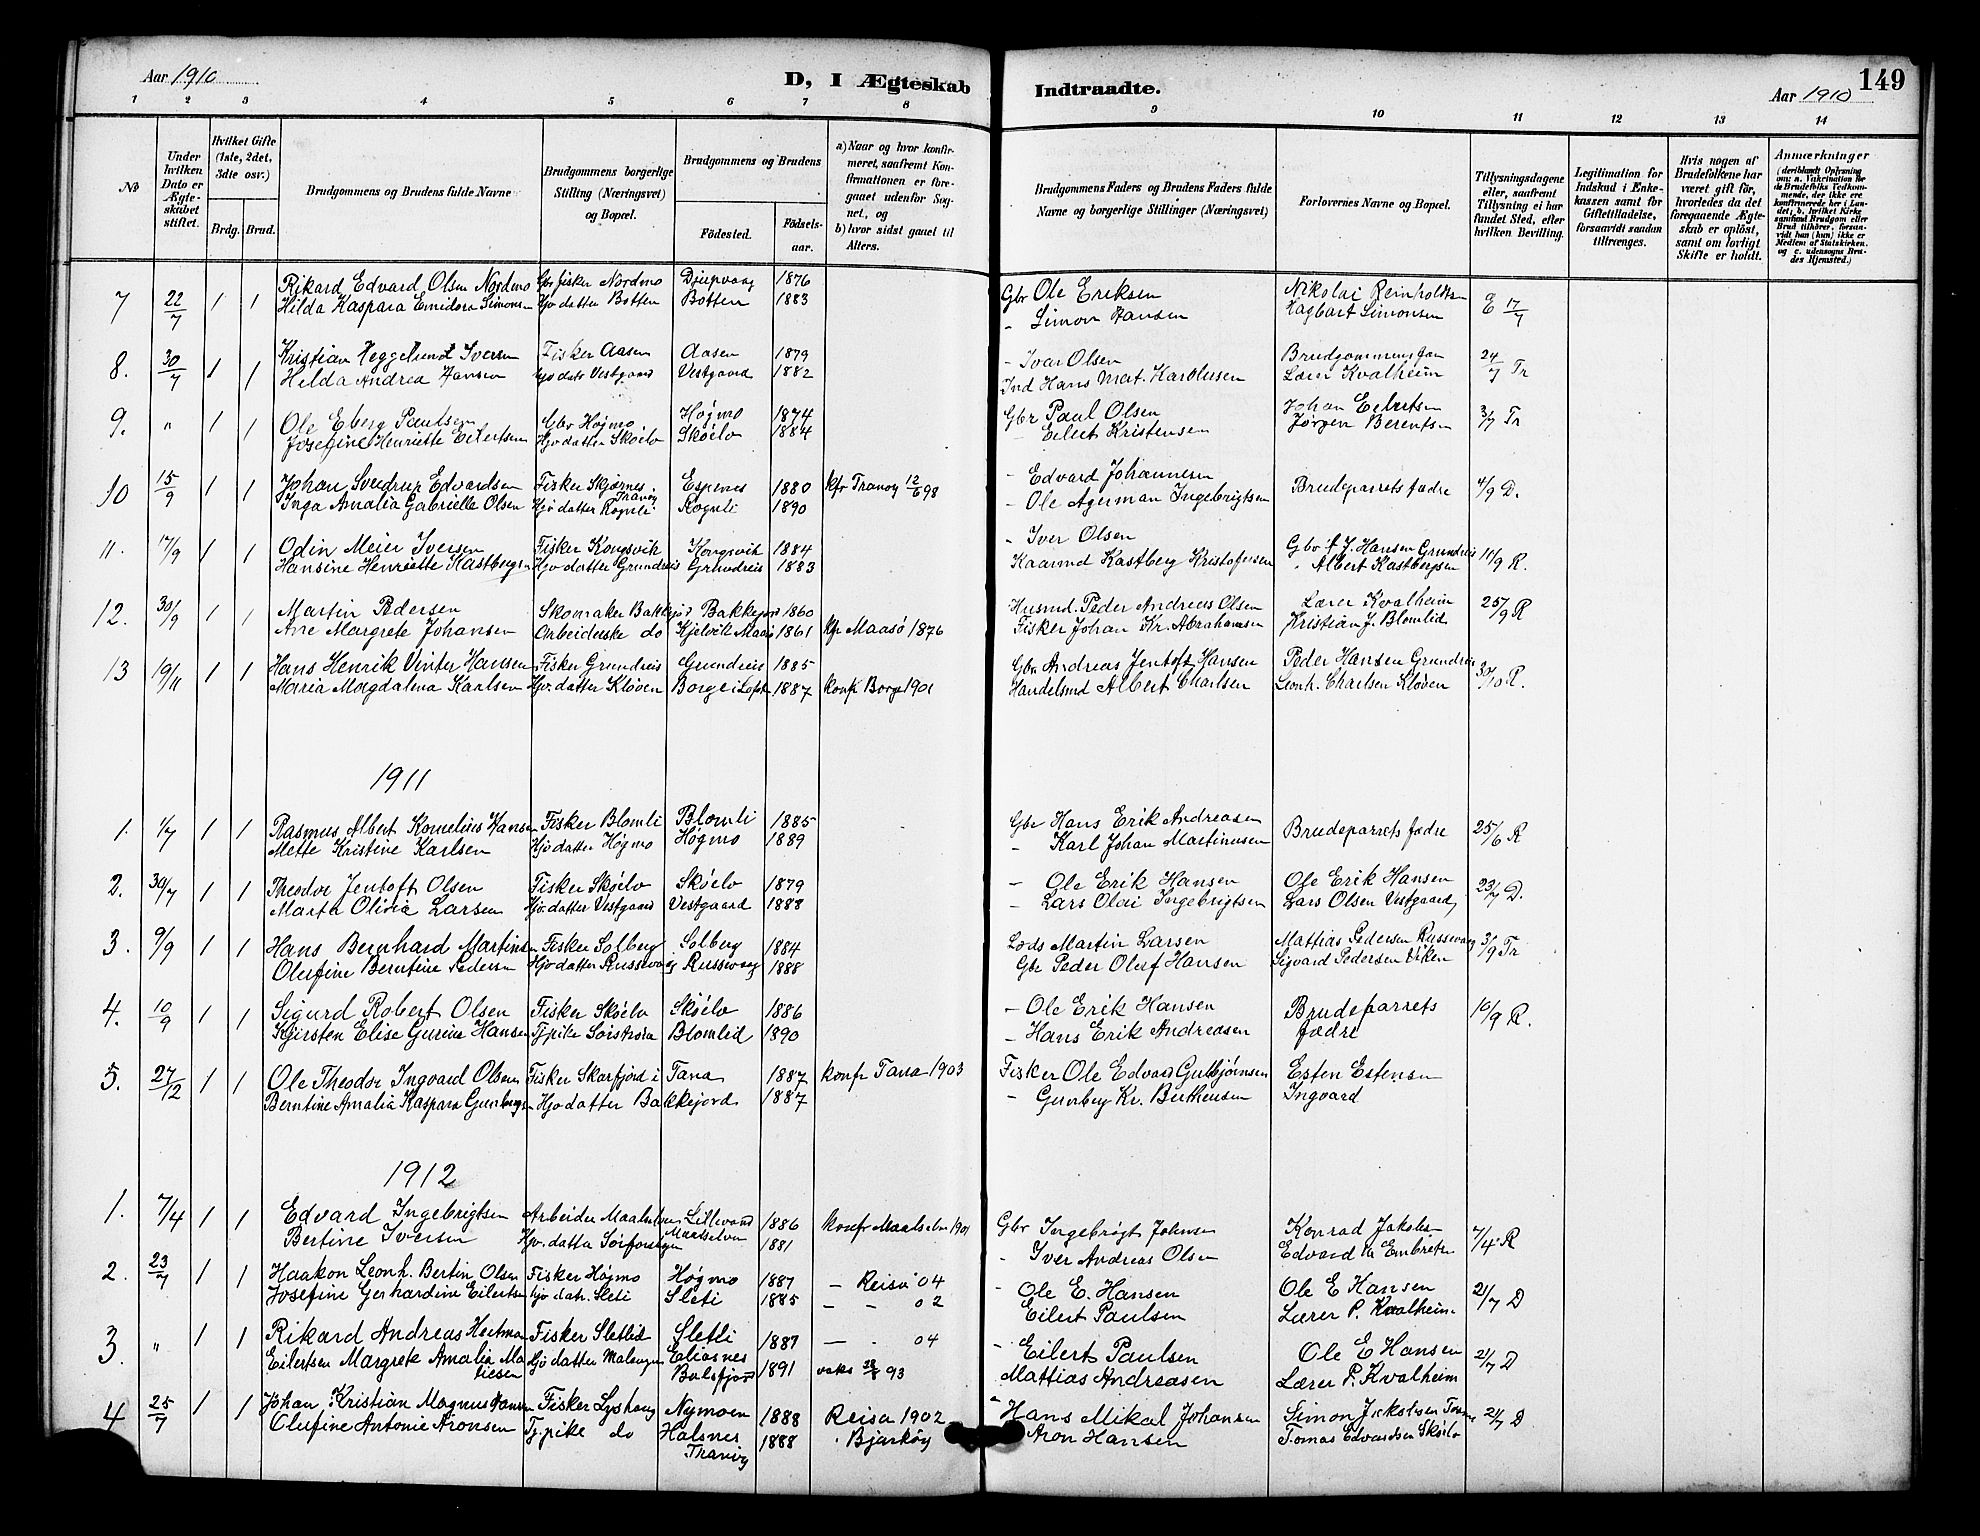 Aar 1910 D, I Ægteskab Indtraadte. Aar 1910 149
1 2 3 4 5 6 7 8 9 10 11 12 13 14
№
Under hvilken Dato er Ægteskabet stiftet.
Hvilket Gifte (1ste, 2det, 3dte osv.)
Brdg. Brud.
Brudgommens og Brudens fulde Navne
Brudgommens og Brudens borgerlige Stilling (Næringsvei) og Bopæl.
Brudgommens og Brudens
Fødested. Fødselsaar.
a) Naar og hvor konfirmeret, saafremt Konfirmationen er foregaaet udenfor Sognet, og
b) hvor sidst gaaet til Alters.
Brudgommens Faders og Brudens Faders fulde Navne og borgerlige Stillinger (Næringsvei)
Forlovernes Navne og Bopæl.
Tillysningsdagene eller, saafremt Tillysning ei har fundet Sted, efter hvilken Bevilling.
Legitimation for Indskud i Enkekassen samt for Giftetilladelse, forsaavidt saadan tiltrænges.
Hvis nogen af Brudefolkene har været gift før, hvorledes da det foregaaende Ægteskab er opløst, samt om lovligt Skifte er holdt.
Anmærkninger
7 22/7 1 1 Rikard Edvard Olsen Nordmo Gbr fisker Nordmo Djupvaag 1876 Gbr Ole Eriksen Nikolai Reinholdtsen E 17/7
Hilda Kaspara Emidora Simonsen Hjo datter Botten Botten 1883 - Simon Hansen Hagbart Simonsen
8. 30/7 1 1 Kristian Heggelund Iversen Fisker Aasen Aasen 1879 - Ivar Olsen Brudgommens far 24/7 Tr
Hilda Andrea Hansen Hjo datr Vestgaard Vestgaard 1882 Ind Hans Mat. Karolusen Lærer Kvalheim
9. " 1 1 Ole Eberg Paulsen Gbr Høgmo Høgmo 1874 Gbr Paul Olsen Johan Eilertsen 3/7 Tr
Josefine Henriette Eilertsen Hjo datter Skøelv Skøelv 1884 - Eilert Kristensen Jørgen Berentsen
10 15/9 1 1 Johan Sverdrup Edvardsen Fisker Skjærnes Tranøy Espenes 1880 kfr Tranøy 12/6 98 - Edvard Johannesen Brudeparrets fædre 4/9 D.
Inga Amalia Gabrielle Olsen Hjo datter Rognli Rognli 1890 - Ole Agerman Ingebrigtsen
11. 17/9 1 1 Odin Meier Iversen Fisker Kongsvik Kongsvik 1884 - Iver Olsen Gbr J. Hansen Grundreis 11/9 R.
Hansine Henriette Kastbergsen Hjo datter Grundreis Grundreis 1883 Kaarmd Kastberg Kristofersen " Albert Kastbergsen
12. 30/9 1 1 Martin Pedersen Skomaker Bakkejord Bakkejord 1860 Husmd. Peder Andreas Olsen Lærer Kvalheim 25/9 R
Ane Margrete Johansen Arbeiderske do Kjelvik Maasø 1861 kfr Maasø 1876 Fisker Johan Kr. Abrahamsen Kristian J. Blomlid
13 19/11 1 1 Hans Henrik Vinter Hansen Fisker Grundreis Grundreis 1885 Gbr Andreas Jentoft Hansen Peder Hansen Grundreis 30/10 R.
Maria Magdalena Karlsen Hjo. datter Kløven Borge i Lofot. 1887 Konfr Borge 1901 Handelsmd Albert Charlsen Leonh. Charlsen Kløven
1911
1. 1/7 1 1 Rasmus Albert Kornelius Hansen Fisker Blomli Blomli 1885 Gbr Hans Erik Andreasen Brudeparrets fædre 25/6 R
Mette Kristine Karlsen Hjo datter Høgmo Høgmo 1889 - Karl Johan Martinusen
2. 30/7 1 1 Theodor Jentoft Olsen Fisker Skøelv Skøelv 1879 - Ole Erik Hansen Ole Erik Hansen 23/7 D.
Marta Olivia Larsen Hjo. datter Vestgaard Vestgaard 1888 - Lars Olai Ingebrigtsen Lars Olsen Vestgaard
3. 9/9 1 1 Hans Bernhard Martinsen Fisker Solberg Solberg 1884 Lods Martin Larsen Mattias Pedersen Russevaag 3/9 Tr
Olufine Berntine Pedersen Hjo datter Russevaag Russevaag 1888 Gbr Peder Oluf Hansen Sigvard Pedersen Viken
4. 10/9 1 1 Sigurd Robert Olsen Fisker Skøelv Skøelv 1886 - Ole Erik Hansen Brudeparrets 10/9 R.
Kjersten Elise Gurine Hansen Tj pike Sørstrøm Blomlid 1890 - Hans Erik Andreasen fædre
5. 27/12 1 1 Ole Theodor Ingvard Olsen Fisker Skarfjord i Tana 1887 konfr Tana 1903 Fisker Ole Edvard Gulbjørnsen Esten Estensen
Berntine Amalia Kaspara Gunbergsen Hjo datter Bakkejord 1887 - Gunberg Kr. Berthensen Ingvard
1912
1. 7/4 1 1 Edvard Ingebrigtsen Arbeider Maalselven Lillevand Maalselven 1886 konfr Maalselven 1901 Gbr Ingebrigt Johnsen Konrad Jakobsen 7/4 R
Bertine Iversen Hjo. datter Sørforsbogen 1881 - Iver Andreas Olsen Edvard Embretsen
2. 23/7 1 1 Haakon Leonh. Bertin Olsen Fisker Høgmo Høgmo 1887 - Reisa 04 - Ole E. Hansen Ole E Hansen 21/7 D
Josefine Gerhardine Eilertsen Hjo datr. Sleti Sleti 1885 - - 02 Eilert Paulsen Lærer P. Kvalheim
3. " 1 1 Rikard Andreas Hertman Fisker Sletlid Sletli 1887 - - 04 - Eilert Paulsen Ole E Hansen 21/7 D
Eilertsen Margrete Amalia Matiesen Hjo datter Malangen Eliasnes Balsfjord 1891 vaks 93 Mattias Andreasen Lærer P. Kvalheim
4 25/7 1 1 Johan Kristian Magnus Hansen Fisker Lyshaug Nymoen 1888 Reisa 1902 - Hans Mikal Johansen Simon Jakobsen 21/7 D
Olufine Antonie Aronsen Tj. pike do Halsnes Tranøy 1888 " Bjarkøy Aron Hansen Tomas Edvardsen Skøelv